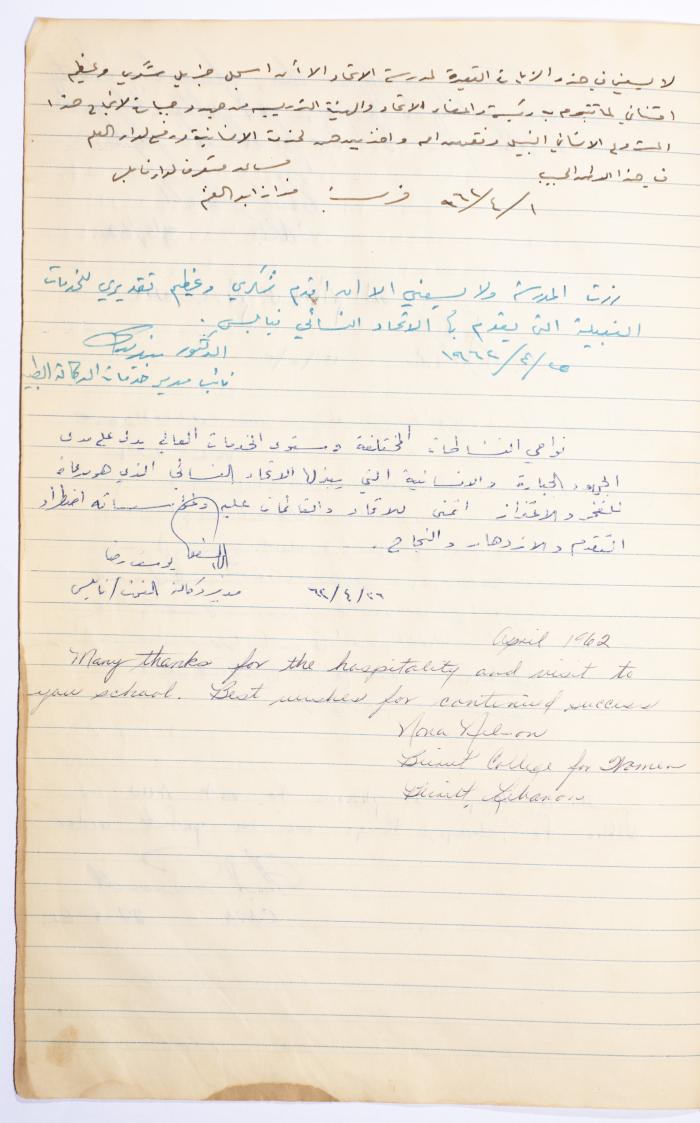 لا يسعني في هذه الزيارة القصيرة لمدرسة الاتحاد الا أن اسجل جزيل شكري وعظيم
امتناني لما تقوم به رئيسة واعضاء الاتحاد والهيئة التدريسية من جهود لانجاح هذا
المشروع الانساني النبيل وفقهن الله واخذ بيدهن لخدمة الانسانية ورفع لواء العلم
في هذا الوطن الحبيب
مساعد متصرف لواء نابلس
١/٤/٩٦٢
زرت المدرسة ولا يسعني الا ان اقدم شكري وعظيم تقديري للخدمات
النبيلة التي يقوم بها الاتحاد النسائي نابلس.
الدكتور
٢٥/٤/١٩٦٢
نائب مدير خدمات الوكالة الطبية
نواحي النشاطات المختلفة ومستوى الخدمات العالي يدل على مدى
الجهود الجبارة والانسانية التي يبذلها الاتحاد النسائي الذي هو مدعاة
للفخر والاعتزاز اتمنى للاتحاد والقائمات عليه وعلى مؤسساته اضطراد
التقدم والازدهار والنجاح.
يوسف رضا
مدير وكالة الغوث / نابلس
٢٦/٤/٦٢
April 1962
Many thanks for the hospitality and visit to
your school. Best wishes for continued success
Nora Nelson
Beirut College for Women
Beirut, Lebanon